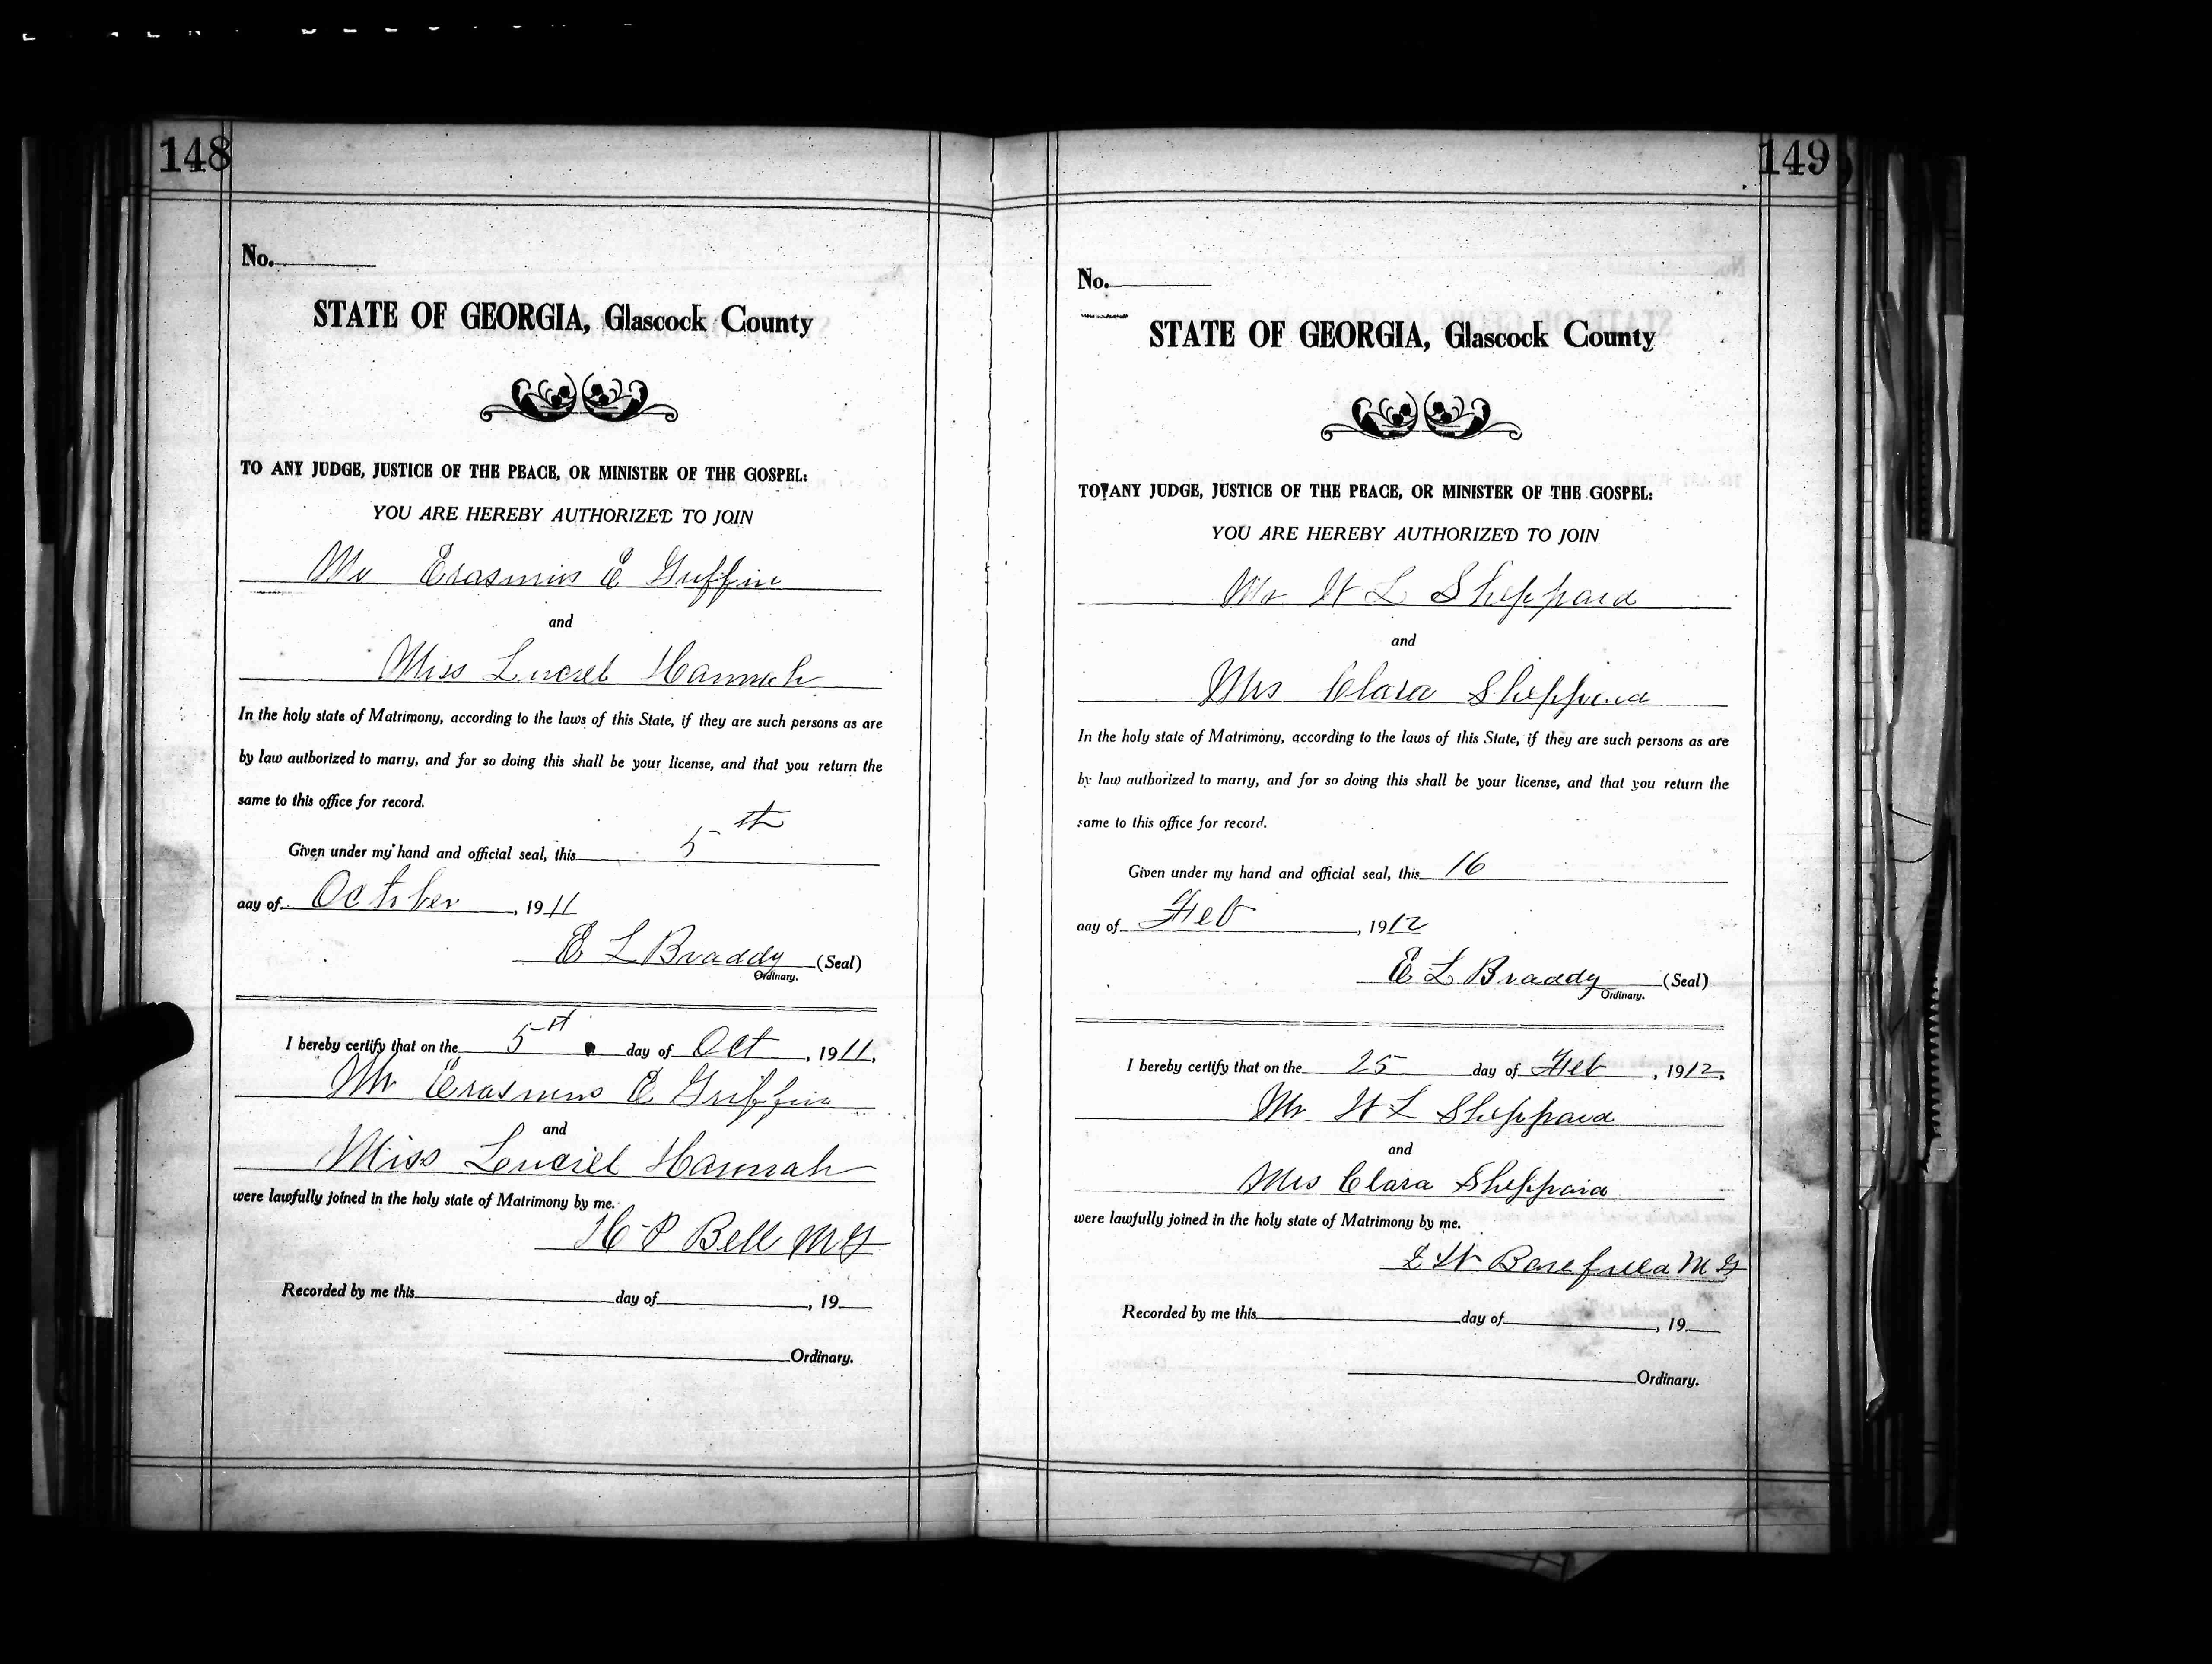 148
No.
STATE OF GEORGIA, Glascock County
TO ANY JUDGE, JUSTICE OF THE PEACE, OR MINISTER OF THE GOSPEL:
YOU ARE HEREBY AUTHORIZED TO JOIN
Mr Erasmus E Griffin
and
Miss Luciel Hannah
In the holy state of Matrimony, according to the laws of this State, if they are such persons as are
by law authorized to marry, and for so doing this shall be your license, and that you return the
same to this office for record.
Given under my hand and official seal, this 5th
day of October, 1911
E L Braddy (Seal)
Ordinary.
I hereby certify that on the 5th day of Oct, 1911.
Mr Erasmus E Griffin
and
Miss Louciel Hannah
were lawfully joined in the holy state of Matrimony by me.
H P Bell M G
Recorded by me this day of , 19
Ordinary.
149
No.
STATE OF GEORGIA, Glascock County
TO ANY JUDGE, JUSTICE OF THE PEACE, OR MINISTER OF THE GOSPEL:
YOU ARE HEREBY AUTHORIZED TO JOIN
Mr W L Sheppard
and
Mrs Clara Sheppard
In the holy state of Matrimony, according to the laws of this State, if they are such persons as are
by law authorized to marry, and for so doing this shall be your license, and that you return the
same to this office for record.
Given under my hand and official seal, this 16
day of Feb, 1912
E L Braddy (Seal)
Ordinary.
I hereby certify that on the 25 day of Feb, 1912.
Mr W L Sheppard
and
Mrs Clara Sheppard
were lawfully joined in the holy state of Matrimony by me.
W Barefield M G
Recorded by me this day of , 19
Ordinary.